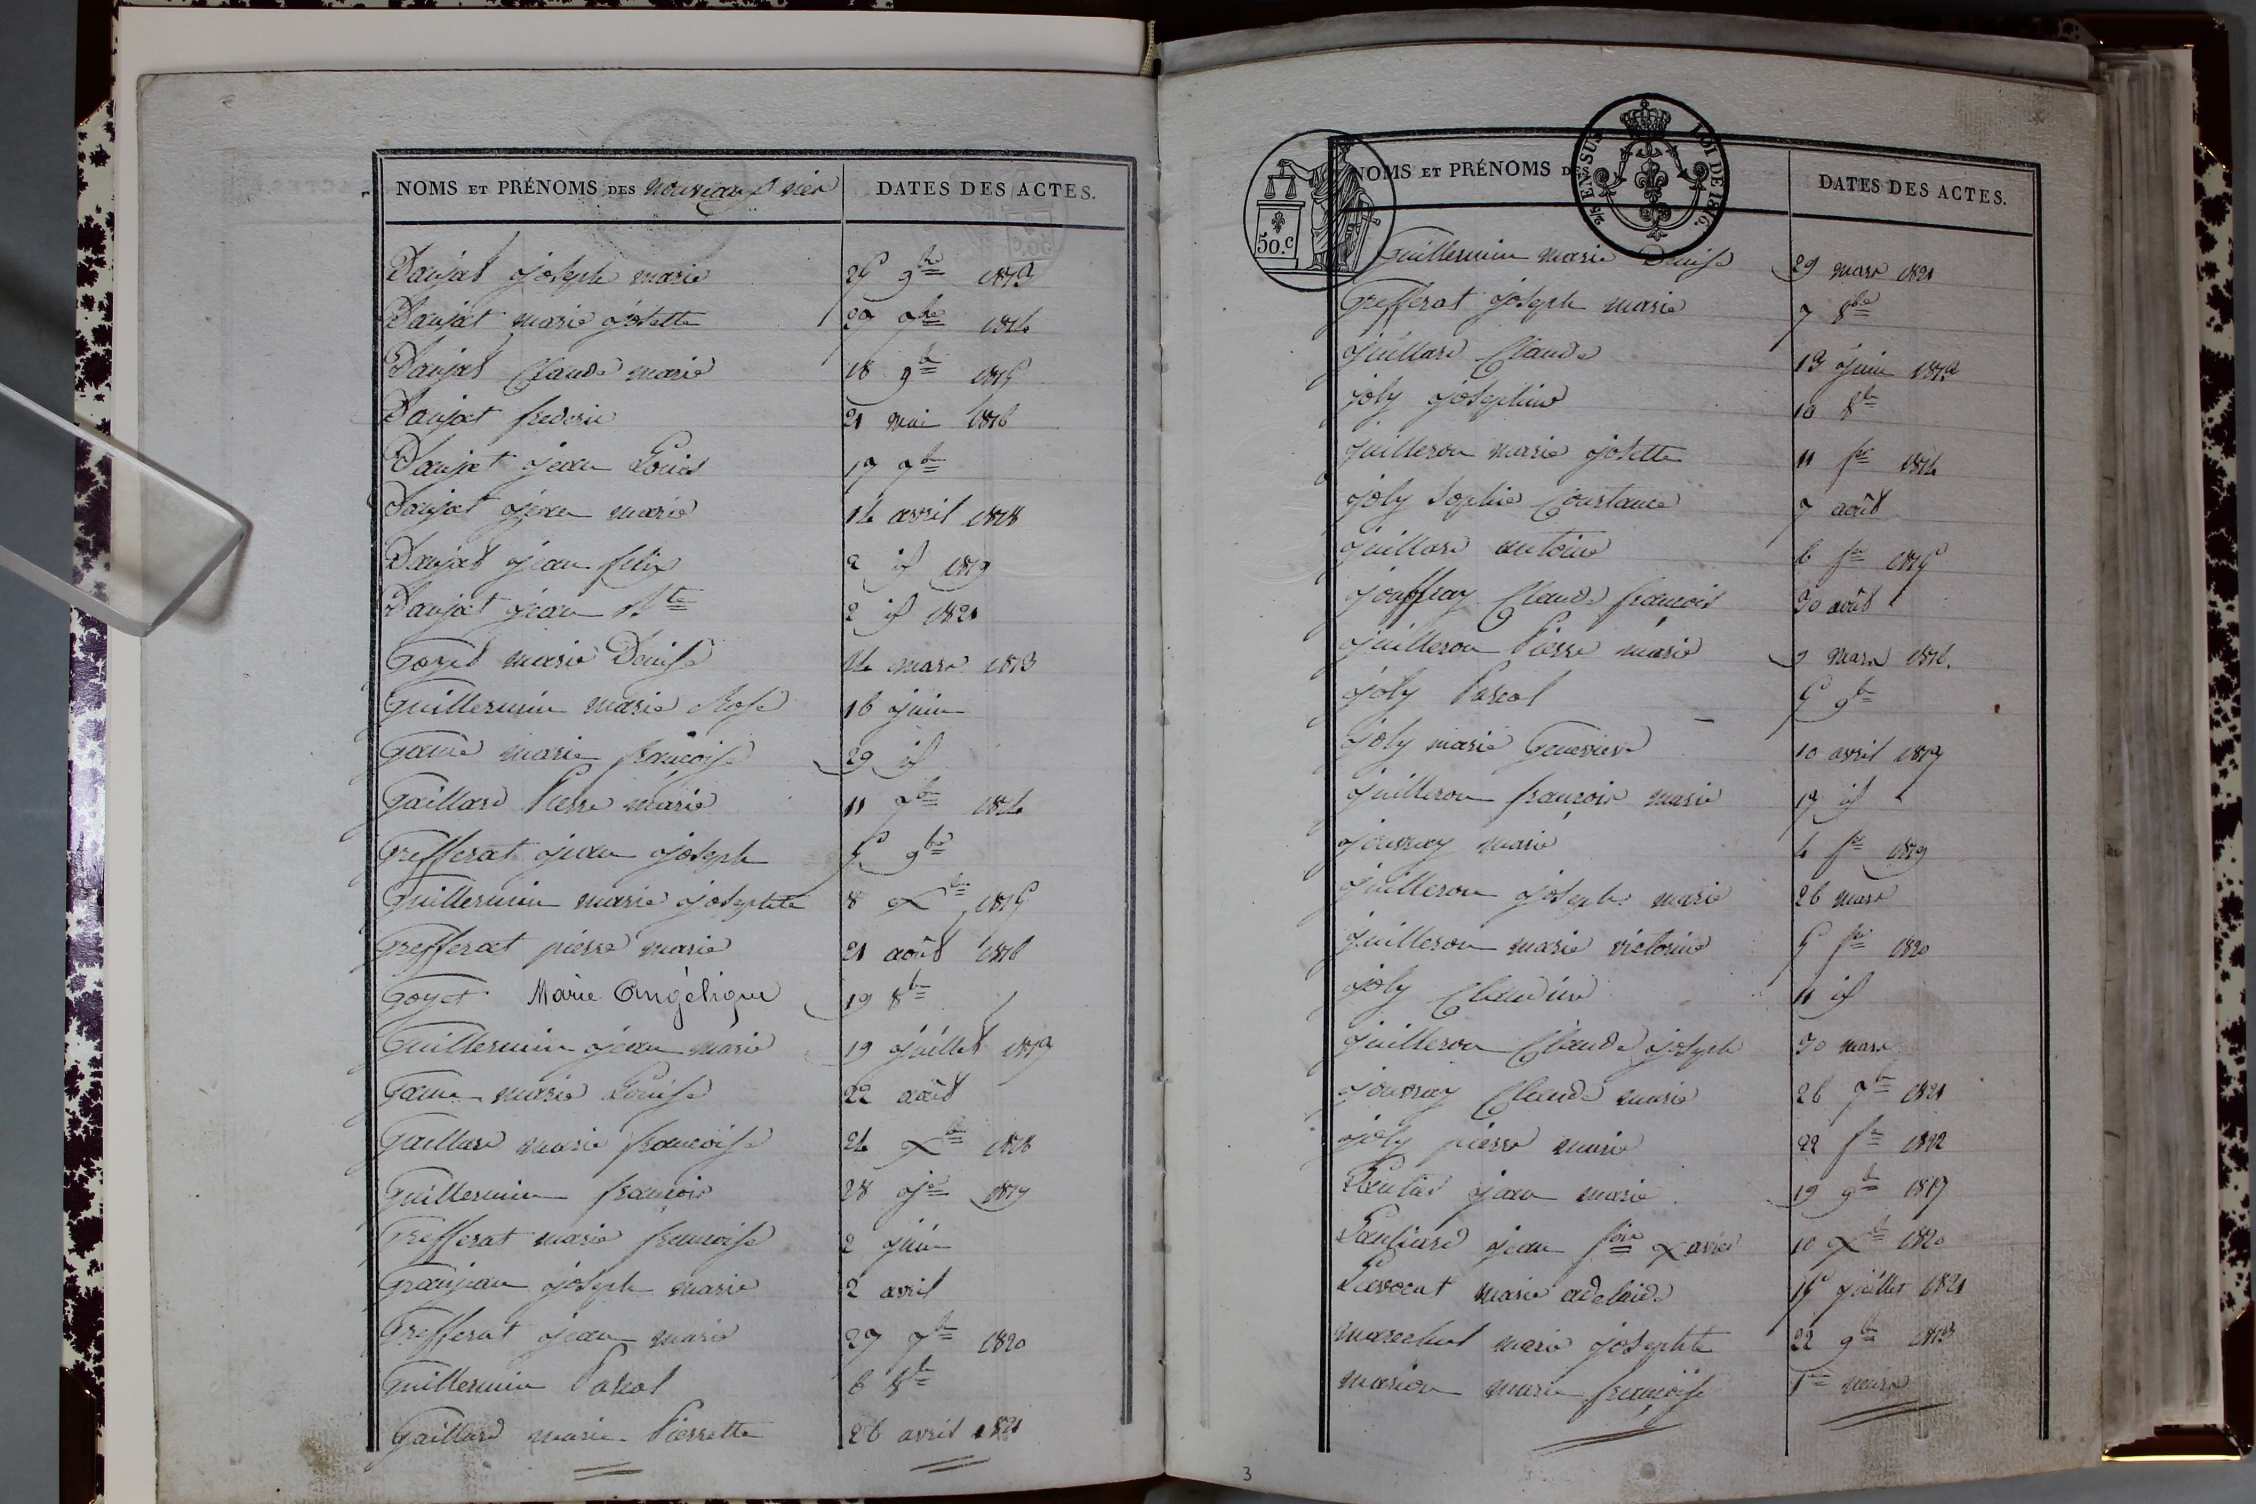 NOMS ET PRÉNOMS DES nouveaux nés DATES DES ACTES.
joseph marie 9bre 1813
marie josette 1814
Claude marie 18 9bre 1815
frederic 21 mai 1816
jean Louis 17
jean marie 14 avril 1818
jean felix 2 id 1819
jean 2 id 1821
Goyet marie Denise 14 mars 1813
Guillermin marie Rose 16 juin
marie françoise 29 id
Gaillard Pierre marie 11 7bre 1814
Grefferat jean joseph 5 9bre
Guillermin marie josephte 8 Xbre 1815
Grefferat pierre marie 21 août 1816
Goyet Marie Angélique 19 8bre
Guillermin jean marie 19 juillet 1817
marie Louise 22 août
Gaillard marie françoise 24 Xbre 1818
Guillermin françois 28 1819
Grefferat marie françoise 2 juin
Granjean joseph marie 2 avril
Grefferat jean marie 27 7bre 1820
Guillermin Pascal 6 8bre
Gaillard marie Pierrette 26 avril 1821
NOMS ET PRÉNOMS DES DATES DES ACTES.
50.c
EN SUS
LOI DE 1816.
Guillermin marie Denise 29 mars 1821
Grefferat joseph marie 7 8bre
juillard Claude 13 juin
joly josephine 10 8bre
juilleron marie josette 11 fer 1814
joly Sophie Constance 7 août
juillard antoine 6 fer 1815
jouffray Claude françois 30 août
juilleron Pierre marie 9 mars 1816
joly Pascal 5 9bre
joly marie Genevieve 10 avril 1817
juilleron françois marie 17 id
marie 4 fer 1819
juilleron joseph marie 26 mars
juilleron marie victorine 5 fer 1820
joly Claudine 11 id
juilleron Claude joseph 30 mars
Claude marie 26 7bre 1821
joly pierre marie 22 fer 1822
jean marie 19 9bre 1817
jean fois Xavier 10 Xbre 1820
Lavocat marie adelaide 15 juillet 1821
marechal marie josephte 22 9bre 1813
marion marie françoise 1er mars
3